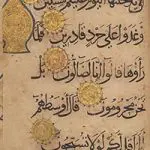 يدخلنها اليوم عليكم مسكين
وغدوا على حرد قادرين فلما
رأوها قالوا إنا لضالون بل
نحن محرومون قال أوسطهم
ألم أقل لكم لولا تسبحون